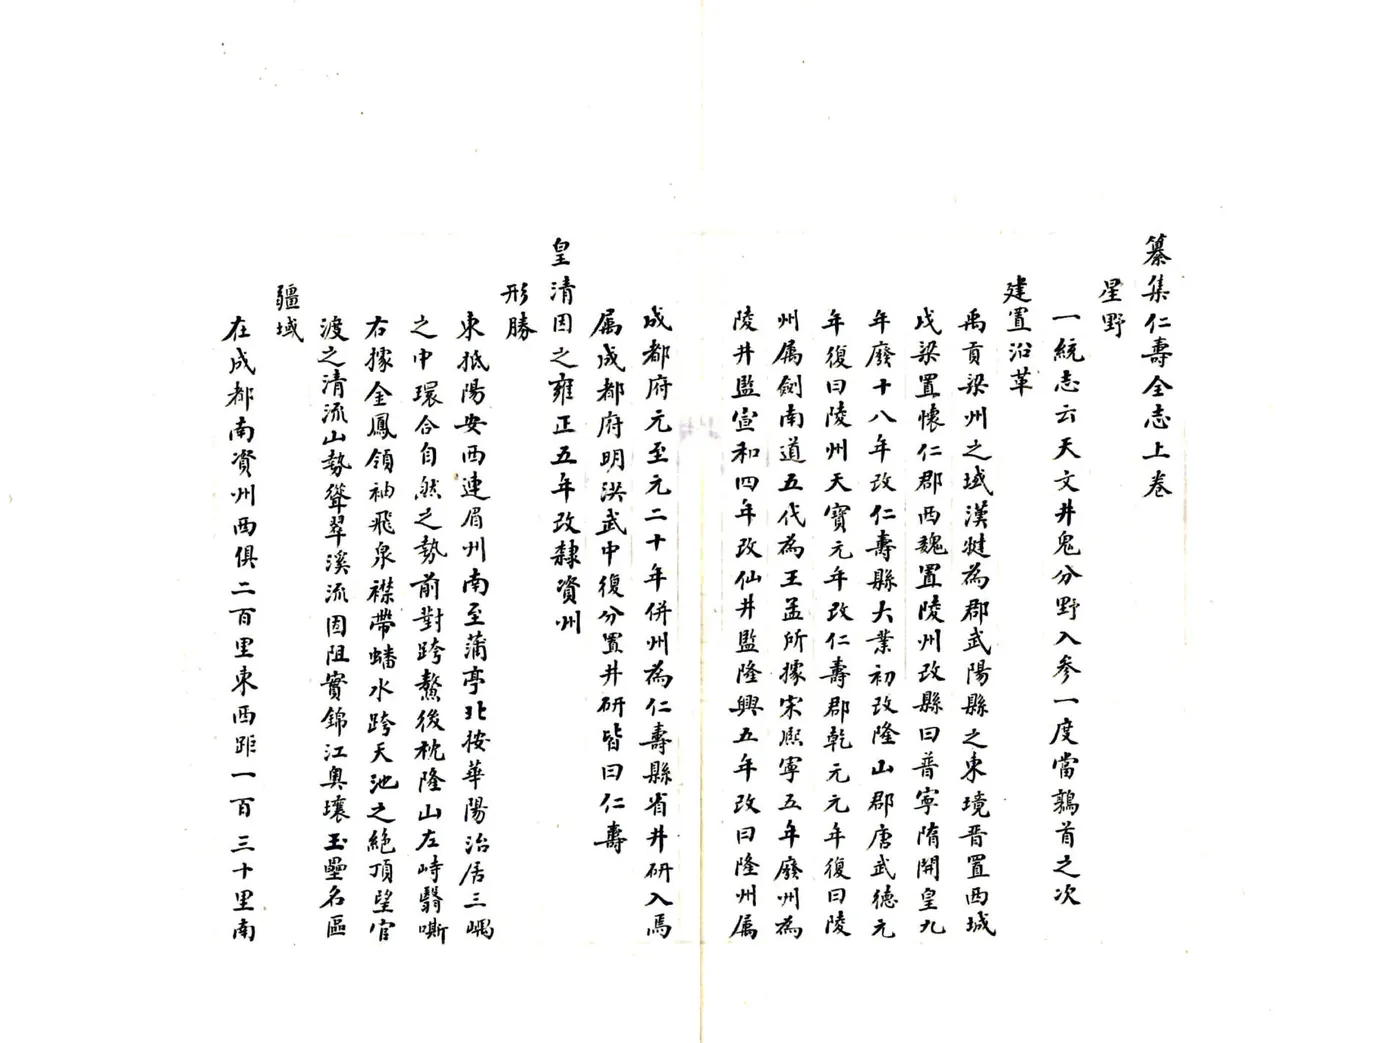 纂集仁壽全志上卷
星野
一統志云天文井鬼分野入參一度當鶉首之次
建置沿革
禹貢梁州之域漢犍為郡武陽縣之東境晉置西城
戍梁置懷仁郡西魏置陵州改縣曰普寧隋開皇九
年廢十八年改仁壽縣大業初改隆山郡唐武德元
年復曰陵州天寶元年改仁壽郡乾元元年復曰陵
州属劍南道五代為王孟所據宋熙寧五年廢州為
陵井監宣和四年改仙井監隆興五年改曰隆州属
成都府元至元二十年併州為仁壽縣省井研入焉
属成都府明洪武中復分置井研皆曰仁壽
皇清因之雍正五年改隸資州
形勝
東抵陽安西連眉州南至蒲亭北按華陽治居三嵎
之中環合自然之勢前對跨鰲後枕隆山左峙翳嘶
右據金鳳領袖飛泉襟帶蟠水跨天池之絕頂望官
渡之清流山勢聳翠溪流固阻實錦江奥壤玉壘名區
疆域
在成都南資州西俱二百里東西距一百三十里南